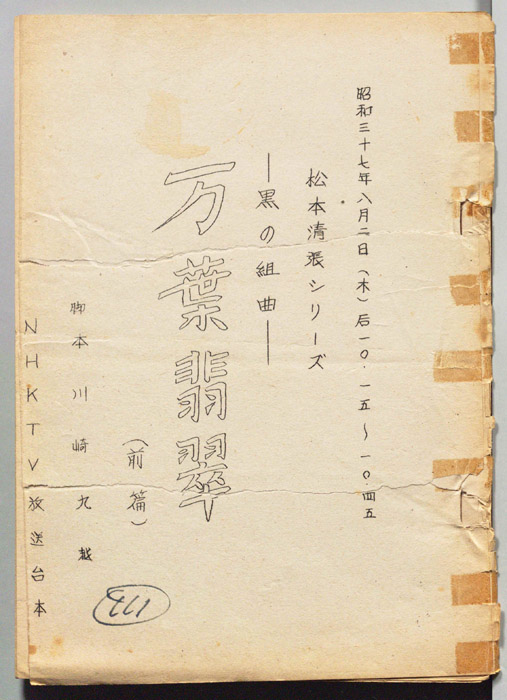 昭和三十七年八月二日(木)后一〇・一五〜一〇・四五
松本清張シリーズ
―黒の組曲―
万葉翡翠
(前篇)
脚本 川崎九越
NHKTV放送台本